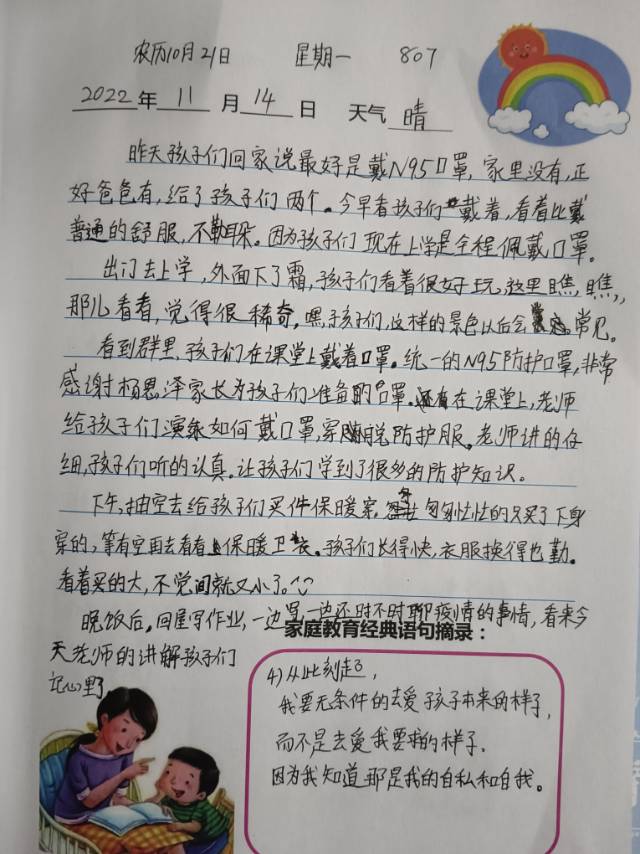 农历10月21日 星期一 807
2022年 11 月 14 日 天气 晴
昨天孩子们回家说最好是戴N95口罩,家里没有,正
好爸爸有,给了孩子们两个。今早看孩子们戴着,看着比戴
普通的舒服,不勒耳朵。因为孩子们现在上学是全程佩戴口罩。
出门去上学,外面下了霜,孩子们看着很好玩,这里瞧,瞧,
那儿看看,觉得很稀奇,嘿,孩子们,这样的景色以后会常见。
看到群里,孩子们在课堂上戴着口罩。统一的N95防护口罩,非常
感谢杨思泽家长为孩子们准备的口罩。还有在课堂上,老师
给孩子们演练如何戴口罩,穿脱防护服。老师讲的仔
细,孩子们听的认真。让孩子们学到了很多的防护知识。
下午,抽空去给孩子们买件保暖穿,匆匆忙忙的只买了下身
穿的,等有空再去看看上保暖卫衣。孩子们长得快,衣服换得也勤。
看着买的大,不觉间就又小了。
晚饭后,回屋写作业,一边写,一边还时不时聊疫情的事情,看来今
天老师的讲解孩子们
记心里了
家庭教育经典语句摘录:
4)从此刻起,
我要无条件的去爱孩子本来的样子,
而不是去爱我要求的样子.
因为我知道那是我的自私和自我。